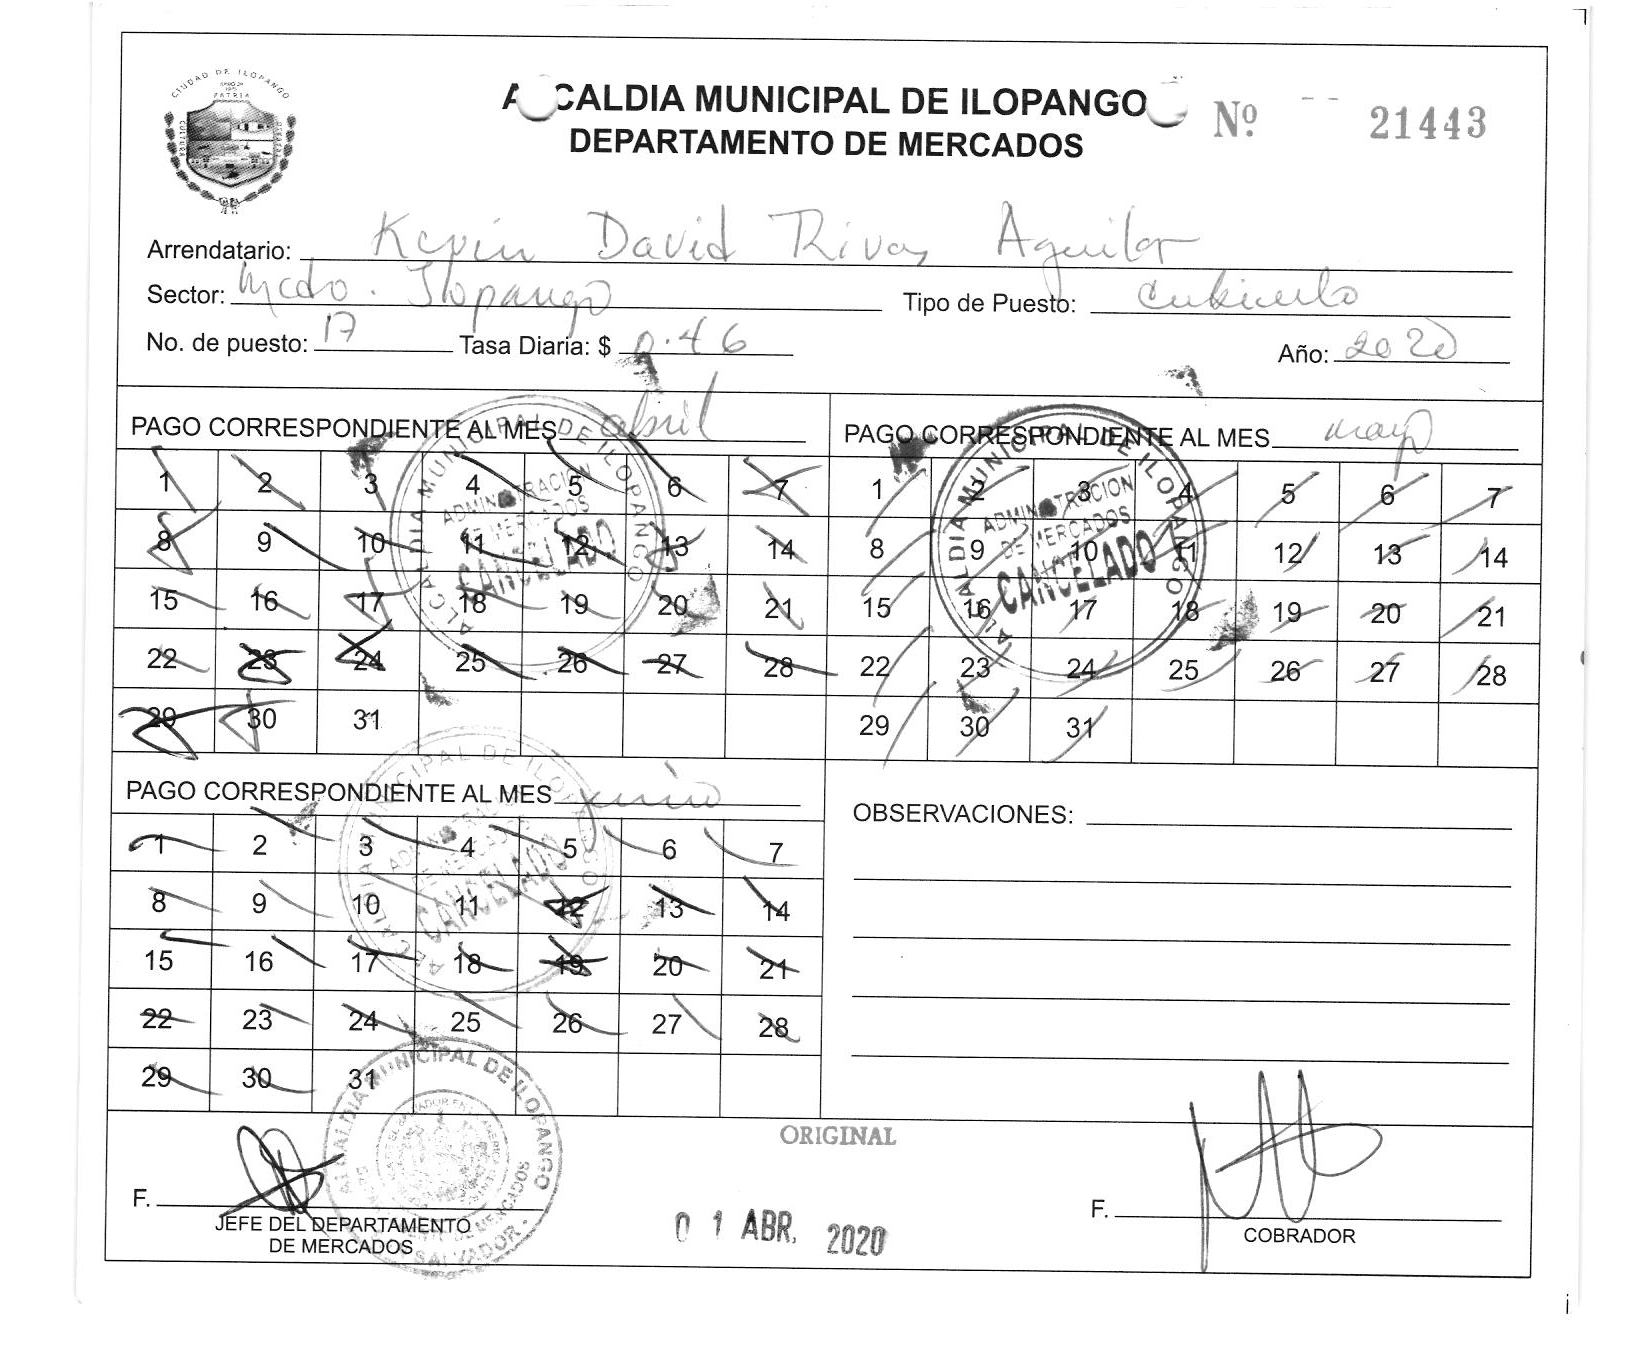 CIUDAD DE ILOPANGO
PATRIA
CULTURA
ALCALDIA MUNICIPAL DE ILOPANGO
DEPARTAMENTO DE MERCADOS
Nº 21443
Arrendatario: Kevin David Rivas Aguilar
Sector: Mcdo. Ilopango Tipo de Puesto: Cubiculo
No. de puesto: 17 Tasa Diaria: $ 0.46 Año: 2020
PAGO CORRESPONDIENTE AL MES abril
1 2 3 4 5 6 7
8 9 10 11 12 13 14
15 16 17 18 19 20 21
22 23 24 25 26 27 28
29 30 31
ALCALDIA MUNICIPAL DE ILOPANGO
ADMINISTRACION
DE MERCADOS
CANCELADO
PAGO CORRESPONDIENTE AL MES mayo
1 2 3 4 5 6 7
8 9 10 11 12 13 14
15 16 17 18 19 20 21
22 23 24 25 26 27 28
29 30 31
ALCALDIA MUNICIPAL DE ILOPANGO
ADMINISTRACION
DE MERCADOS
CANCELADO
PAGO CORRESPONDIENTE AL MES junio
1 2 3 4 5 6 7
8 9 10 11 12 13 14
15 16 17 18 19 20 21
22 23 24 25 26 27 28
29 30 31
ALCALDIA MUNICIPAL DE ILOPANGO
ADMINISTRACION
DE MERCADOS
CANCELADO
OBSERVACIONES:
ALCALDIA MUNICIPAL DE ILOPANGO
DE MERCADOS
SALVADOR
ORIGINAL
F.
JEFE DEL DEPARTAMENTO
DE MERCADOS
01 ABR. 2020
F.
COBRADOR